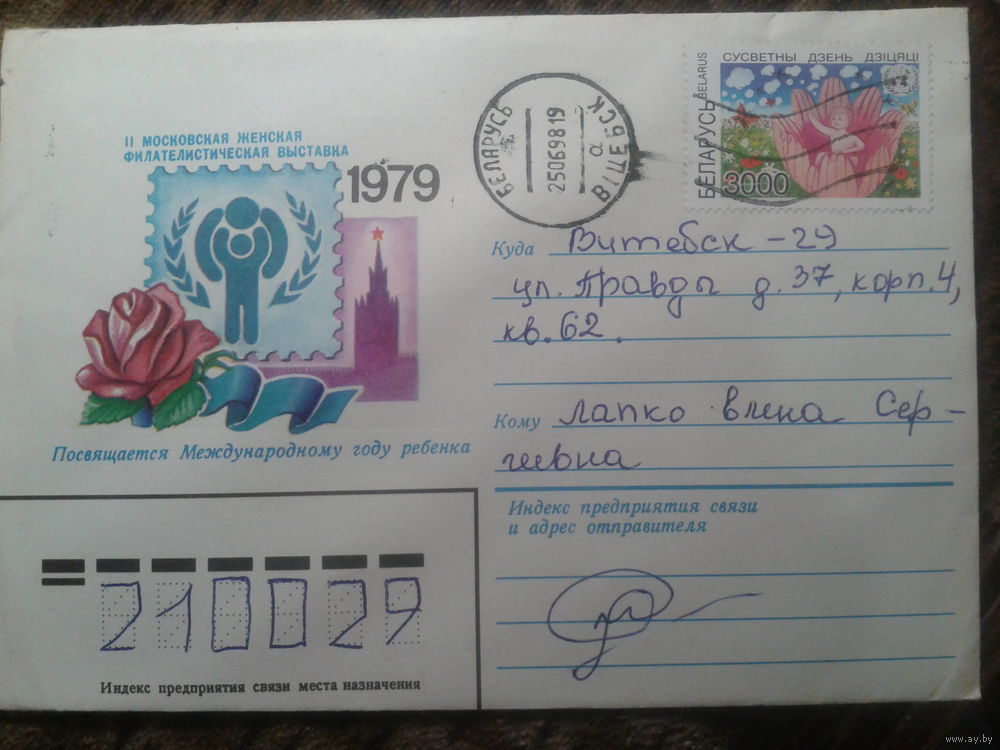 II МОСКОВСКАЯ ЖЕНСКАЯ
ФИЛАТЕЛИСТИЧЕСКАЯ ВЫСТАВКА
1979
Посвящается Международному году ребенка
БЕЛАРУСЬ
25069819
ВIЦЕБСК
а
СУСВЕТНЫ ДЗЕНЬ ДЗІЦЯЦІ
БЕЛАРУСЬ
BELARUS
3000
Куда Витебск - 29
ул. Правды д. 37, корп. 4,
кв. 62.
Кому Лапко Елена Сер-
геевна
Индекс предприятия связи
и адрес отправителя
210029
Индекс предприятия связи места назначения
www.ay.by